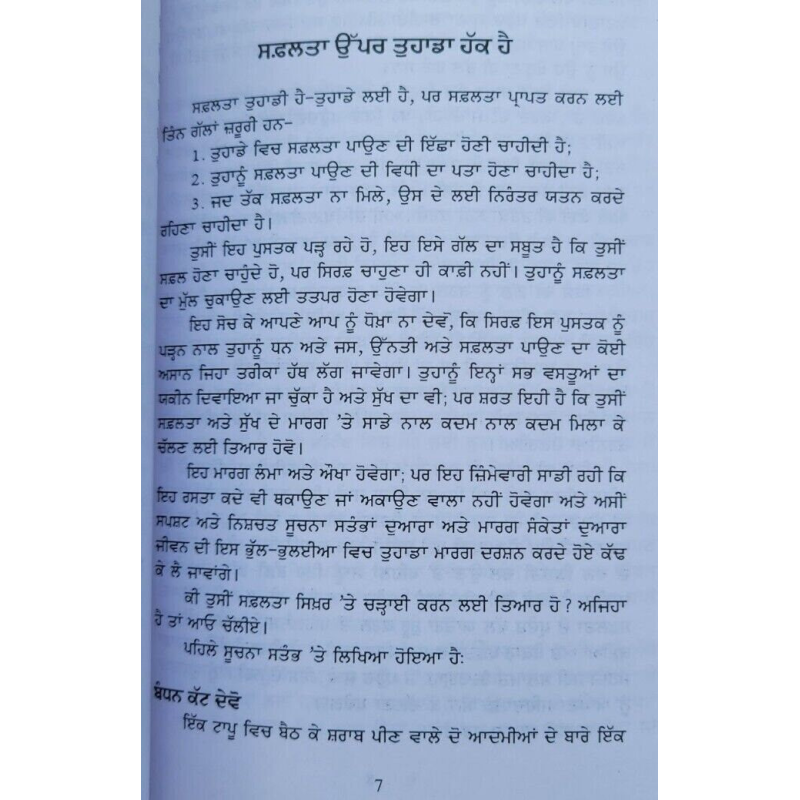 ਸਫ਼ਲਤਾ ਉੱਪਰ ਤੁਹਾਡਾ ਹੱਕ ਹੈ
ਸਫ਼ਲਤਾ ਤੁਹਾਡੀ ਹੈ-ਤੁਹਾਡੇ ਲਈ ਹੈ, ਪਰ ਸਫ਼ਲਤਾ ਪ੍ਰਾਪਤ ਕਰਨ ਲਈ
ਤਿੰਨ ਗੱਲਾਂ ਜ਼ਰੂਰੀ ਹਨ-
1. ਤੁਹਾਡੇ ਵਿਚ ਸਫ਼ਲਤਾ ਪਾਉਣ ਦੀ ਇੱਛਾ ਹੋਣੀ ਚਾਹੀਦੀ ਹੈ;
2. ਤੁਹਾਨੂੰ ਸਫ਼ਲਤਾ ਪਾਉਣ ਦੀ ਵਿਧੀ ਦਾ ਪਤਾ ਹੋਣਾ ਚਾਹੀਦਾ ਹੈ;
3. ਜਦ ਤੱਕ ਸਫ਼ਲਤਾ ਨਾ ਮਿਲੇ, ਉਸ ਦੇ ਲਈ ਨਿਰੰਤਰ ਯਤਨ ਕਰਦੇ
ਰਹਿਣਾ ਚਾਹੀਦਾ ਹੈ।
ਤੁਸੀਂ ਇਹ ਪੁਸਤਕ ਪੜ੍ਹ ਰਹੇ ਹੋ, ਇਹ ਇਸੇ ਗੱਲ ਦਾ ਸਬੂਤ ਹੈ ਕਿ ਤੁਸੀਂ
ਸਫ਼ਲ ਹੋਣਾ ਚਾਹੁੰਦੇ ਹੋ, ਪਰ ਸਿਰਫ਼ ਚਾਹੁਣਾ ਹੀ ਕਾਫ਼ੀ ਨਹੀਂ। ਤੁਹਾਨੂੰ ਸਫ਼ਲਤਾ
ਦਾ ਮੁੱਲ ਚੁਕਾਉਣ ਲਈ ਤਤਪਰ ਹੋਣਾ ਹੋਵੇਗਾ।
ਇਹ ਸੋਚ ਕੇ ਆਪਣੇ ਆਪ ਨੂੰ ਧੋਖ਼ਾ ਨਾ ਦੇਵੋ, ਕਿ ਸਿਰਫ਼ ਇਸ ਪੁਸਤਕ ਨੂੰ
ਪੜ੍ਹਨ ਨਾਲ ਤੁਹਾਨੂੰ ਧਨ ਅਤੇ ਜਸ, ਉੱਨਤੀ ਅਤੇ ਸਫ਼ਲਤਾ ਪਾਉਣ ਦਾ ਕੋਈ
ਅਸਾਨ ਜਿਹਾ ਤਰੀਕਾ ਹੱਥ ਲੱਗ ਜਾਵੇਗਾ। ਤੁਹਾਨੂੰ ਇਨ੍ਹਾਂ ਸਭ ਵਸਤੂਆਂ ਦਾ
ਯਕੀਨ ਦਿਵਾਇਆ ਜਾ ਚੁੱਕਾ ਹੈ ਅਤੇ ਸੁੱਖ ਦਾ ਵੀ; ਪਰ ਸ਼ਰਤ ਇਹੀ ਹੈ ਕਿ ਤੁਸੀਂ
ਸਫ਼ਲਤਾ ਅਤੇ ਸੁੱਖ ਦੇ ਮਾਰਗ ’ਤੇ ਸਾਡੇ ਨਾਲ ਕਦਮ ਨਾਲ ਕਦਮ ਮਿਲਾ ਕੇ
ਚੱਲਣ ਲਈ ਤਿਆਰ ਹੋਵੋ।
ਇਹ ਮਾਰਗ ਲੰਮਾ ਅਤੇ ਔਖਾ ਹੋਵੇਗਾ; ਪਰ ਇਹ ਜ਼ਿੰਮੇਵਾਰੀ ਸਾਡੀ ਰਹੀ ਕਿ
ਇਹ ਰਸਤਾ ਕਦੇ ਵੀ ਥਕਾਉਣ ਜਾਂ ਅਕਾਉਣ ਵਾਲਾ ਨਹੀਂ ਹੋਵੇਗਾ ਅਤੇ ਅਸੀਂ
ਸਪਸ਼ਟ ਅਤੇ ਨਿਸ਼ਚਤ ਸੂਚਨਾ ਸਤੰਭਾਂ ਦੁਆਰਾ ਅਤੇ ਮਾਰਗ ਸੰਕੇਤਾਂ ਦੁਆਰਾ
ਜੀਵਨ ਦੀ ਇਸ ਭੁੱਲ-ਭੁਲਈਆ ਵਿਚ ਤੁਹਾਡਾ ਮਾਰਗ ਦਰਸ਼ਨ ਕਰਦੇ ਹੋਏ ਕੱਢ
ਕੇ ਲੈ ਜਾਵਾਂਗੇ।
ਕੀ ਤੁਸੀਂ ਸਫ਼ਲਤਾ ਸਿਖ਼ਰ ’ਤੇ ਚੜ੍ਹਾਈ ਕਰਨ ਲਈ ਤਿਆਰ ਹੋ? ਅਜਿਹਾ
ਹੈ ਤਾਂ ਆਓ ਚੱਲੀਏ।
ਪਹਿਲੇ ਸੂਚਨਾ ਸਤੰਭ ’ਤੇ ਲਿਖਿਆ ਹੋਇਆ ਹੈ:
ਬੰਧਨ ਕੱਟ ਦੇਵੋ
ਇੱਕ ਟਾਪੂ ਵਿਚ ਬੈਠ ਕੇ ਸ਼ਰਾਬ ਪੀਣ ਵਾਲੇ ਦੋ ਆਦਮੀਆਂ ਦੇ ਬਾਰੇ ਇੱਕ
7